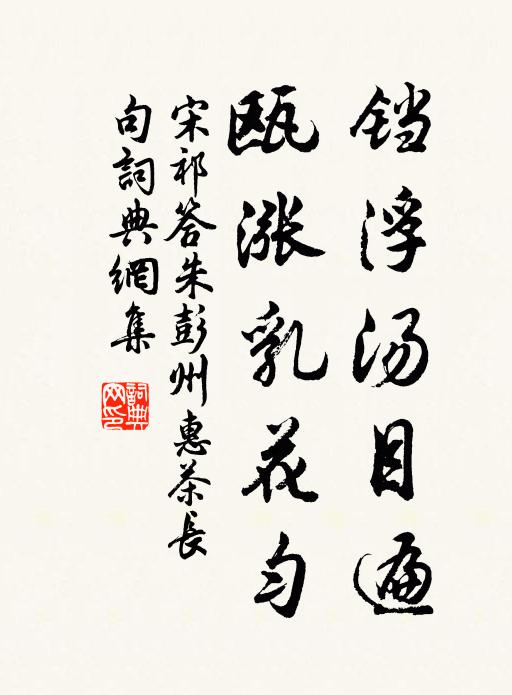 铛浮汤目遍
瓯涨乳花匀
宋祁答朱彭州惠茶長
句詞典網集
詞典
网印